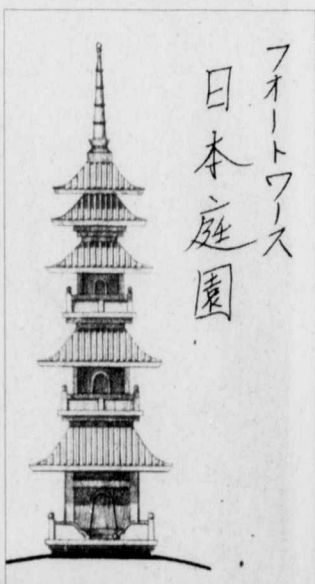 フォートワース
日本庭園